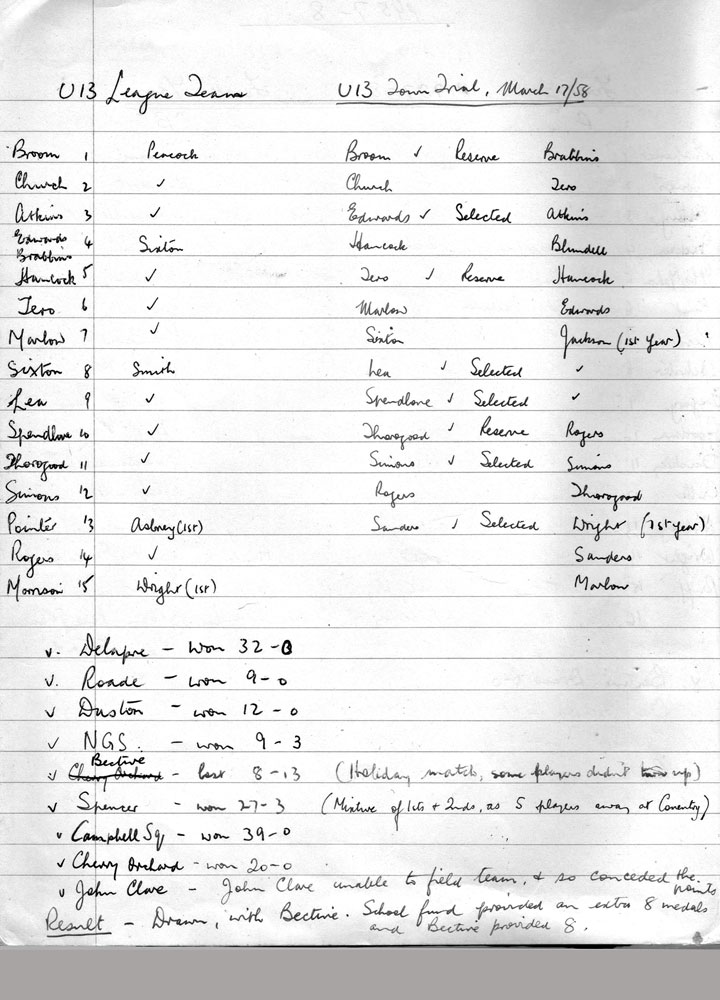 U13 League Teams U13 Town Trial, March 17/58
Broom 1 Peacock Broom ✓ Reserve Brabbins
Church 2 ✓ Church Tero
Atkins 3 ✓ Edwards ✓ Selected Atkins
Edwards 4 Sixton Hancock Blundell
Brabbins
Hancock 5 ✓ Tero ✓ Reserve Hancock
Tero 6 ✓ Marlow Edwards
Marlow 7 ✓ Sixton Jackson (1st year)
Sixton 8 Smith Lea ✓ Selected ✓
Lea 9 ✓ Spendlove ✓ Selected ✓
Spendlove 10 ✓ Thorogood ✓ Reserve Rogers
Thorogood 11 ✓ Simons ✓ Selected Simons
Simons 12 ✓ Rogers Thorogood
Pointer 13 (1st) Sanders ✓ Selected Wright (1st year)
Rogers 14 ✓ Sanders
Morrison 15 Wright (1st) Marlow
v. Delapre - won 32-0
v. Roade - won 9-0
v Duston - won 12-0
v NGS. - won 9-3
Bective
v Cherry Orchard - lost 8-13 (Holiday match, some players didn't turn up)
v Spencer - won 27-3 (Mixture of 1sts + 2nds, as 5 players away at Coventry)
v Campbell Sq - won 39-0
v Cherry Orchard - won 20-0
v John Clare - John Clare unable to field team, & so conceded the points
Result - Drawn, with Bective. School fund provided an extra 8 medals
and Bective provided 8.